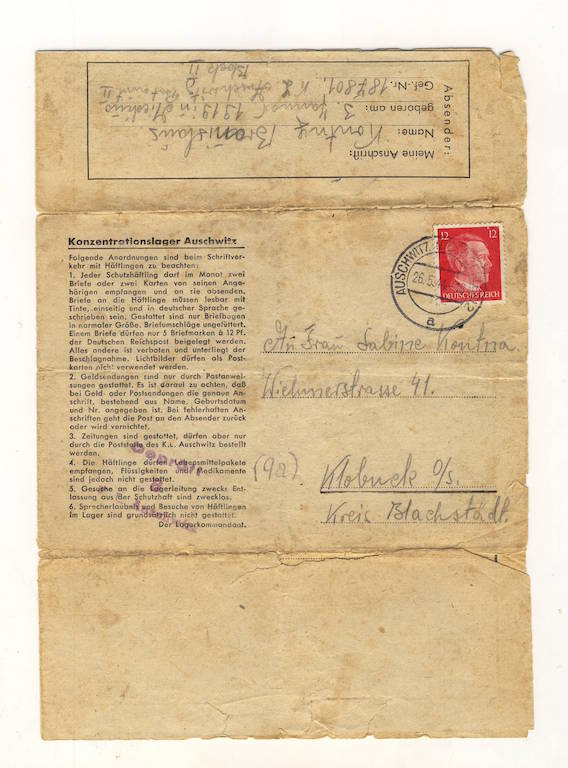 Absender:
Meine Anschrift:
Name: Kontny Bronislaus
geboren am: 3. Januar 1919 in
Gef.-Nr. 187801. K.L.
Auschwitz
Block 11
Konzentrationslager Auschwitz
Folgende Anordnungen sind beim Schriftver-
kehr mit Häftlingen zu beachten:
1. Jeder Schutzhäftling darf im Monat zwei
Briefe oder zwei Karten von seinen Ange-
hörigen empfangen und an sie absenden.
Briefe an die Häftlinge müssen lesbar mit
Tinte, einseitig und in deutscher Sprache ge-
schrieben sein. Gestattet sind nur Briefbogen
in normaler Größe. Briefumschläge ungefüttert.
Einem Briefe dürfen nur 5 Briefmarken à 12 Pf.
der Deutschen Reichspost beigelegt werden.
Alles andere ist verboten und unterliegt der
Beschlagnahme. Lichtbilder dürfen als Post-
karten nicht verwendet werden.
2. Geldsendungen sind nur durch Postanwei-
sungen gestattet. Es ist darauf zu achten, daß
bei Geld- oder Postsendungen die genaue An-
schrift, bestehend aus Name, Geburtsdatum
und Nr. angegeben ist. Bei fehlerhaften An-
schriften geht die Post an den Absender zurück
oder wird vernichtet.
3. Zeitungen sind gestattet, dürfen aber nur
durch die Poststelle des K.L. Auschwitz bestellt
werden.
4. Die Häftlinge dürfen Lebensmittelpakete
empfangen, Flüssigkeiten und Medikamente
sind jedoch nicht gestattet.
5. Gesuche an die Lagerleitung zwecks Ent-
lassung aus der Schutzhaft sind zwecklos.
6. Sprecherlaubnis und Besuche von Häftlingen
im Lager sind grundsätzlich nicht gestattet.
Der Lagerkommandant.
Geprüft
AUSCHWITZ
26.5.
a
12 12
DEUTSCHES REICH
An Frau Sabine Kontna.
Wielunerstrasse 41.
(9a) Klobuck O/S.
Kreis Blachstädt.